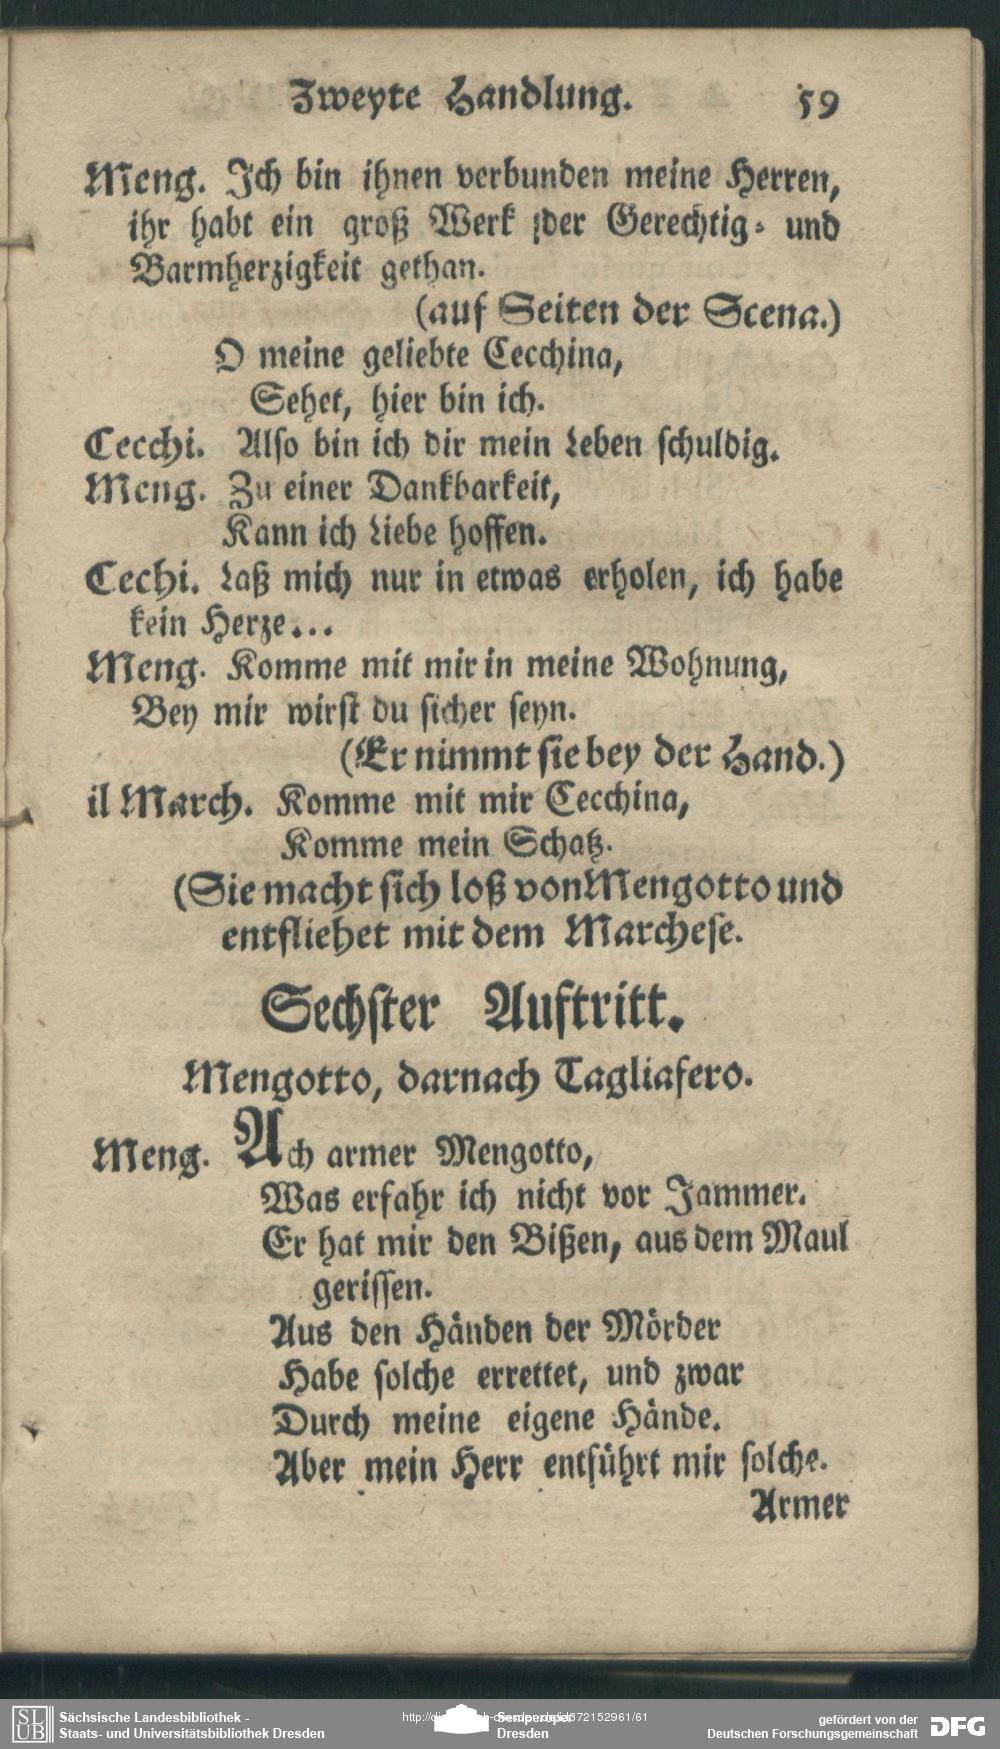 Zweyte Handlung. 59
Meng. Ich bin ihnen verbunden meine Herren,
ihr habt ein groß Werk der Gerechtig- und
Barmherzigkeit gethan.
(auf Seiten der Scena.)
O meine geliebte Cecchina,
Sehet, hier bin ich.
Cecchi. Also bin ich dir mein Leben schuldig.
Meng. Zu einer Dankbarkeit,
Kann ich Liebe hoffen.
Cechi. Laß mich nur in etwas erholen, ich habe
kein Herze...
Meng. Komme mit mir in meine Wohnung,
Bey mir wirst du sicher seyn.
(Er nimmt sie bey der Hand.)
il March. Komme mit mir Cecchina,
Komme mein Schatz.
(Sie macht sich loß von Mengotto und
entfliehet mit dem Marchese.
Sechster Auftritt.
Mengotto, darnach Tagliafero.
Meng. Ach armer Mengotto,
Was erfahr ich nicht vor Jammer.
Er hat mir den Bißen, aus dem Maul
gerissen.
Aus den Händen der Mörder
Habe solche errettet, und zwar
Durch meine eigene Hände.
Aber mein Herr entführt mir solche.
Armer
SLUB
Sächsische Landesbibliothek -
Staats- und Universitätsbibliothek Dresden
Semperoper
Dresden
gefördert von der
Deutschen Forschungsgemeinschaft
DFG